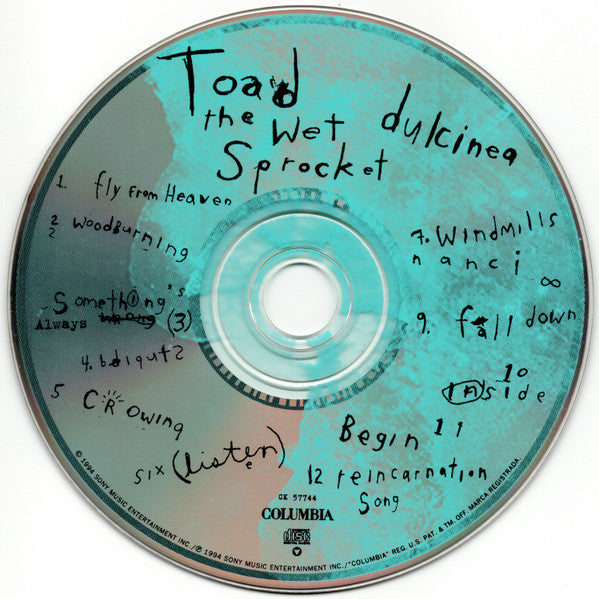 Toad
the Wet
Sprocket
dulcinea
1. fly from Heaven
2
2 WoodBurning
Something's
Always (3)
4.
5 CROwing
six (listen)
7. Windmills
nanci ∞
9. fall down
10
INside
Begin 11
12 reincarnation
Song
CK 57744
COLUMBIA
disc
© 1994 SONY MUSIC ENTERTAINMENT INC./℗ 1994 SONY MUSIC ENTERTAINMENT INC./"COLUMBIA" REG. U.S. PAT. & TM. OFF. MARCA REGISTRADA.